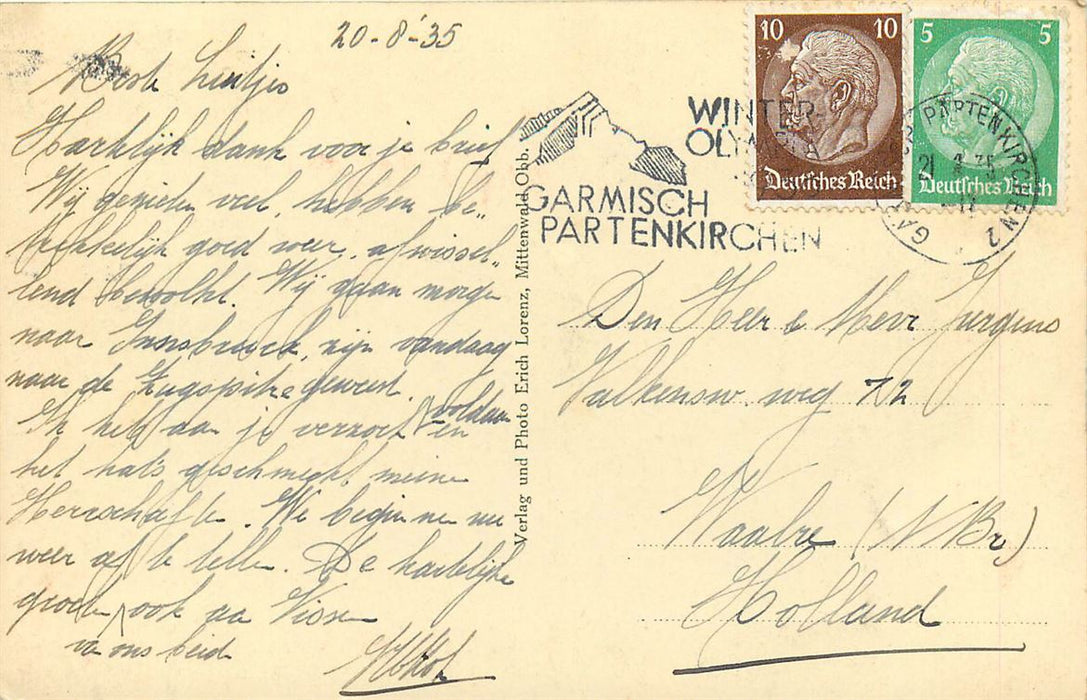 20-8-'35
Beste Luitjes
Hartelijk dank voor je brief
Wij genieten veel, hebben be„
trekkelijk goed weer, afwissel„
lend bewolkt. Wij gaan morgen
naar Innsbruck, zijn vandaag
naar de Zugspitze geweest.
Ik heb aan je verzoek voldaan en
het hat's geschmeckt meine
Herrschafte. We beginnen nu
weer af te tellen. De hartelijke
groeten, ook aa Vissen
va ons beid
Verlag und Photo Erich Lorenz, Mittenwald Obb.
WINTER-
OLYMPIA
GARMISCH
PARTENKIRCHEN
10 10
Deutsches Reich
5 5
Deutsches Reich
PARTENKIRCHEN 2
21
Den Heer & Mevr Jurgens
Valkensw. weg 72
Waalre (N Br)
Holland